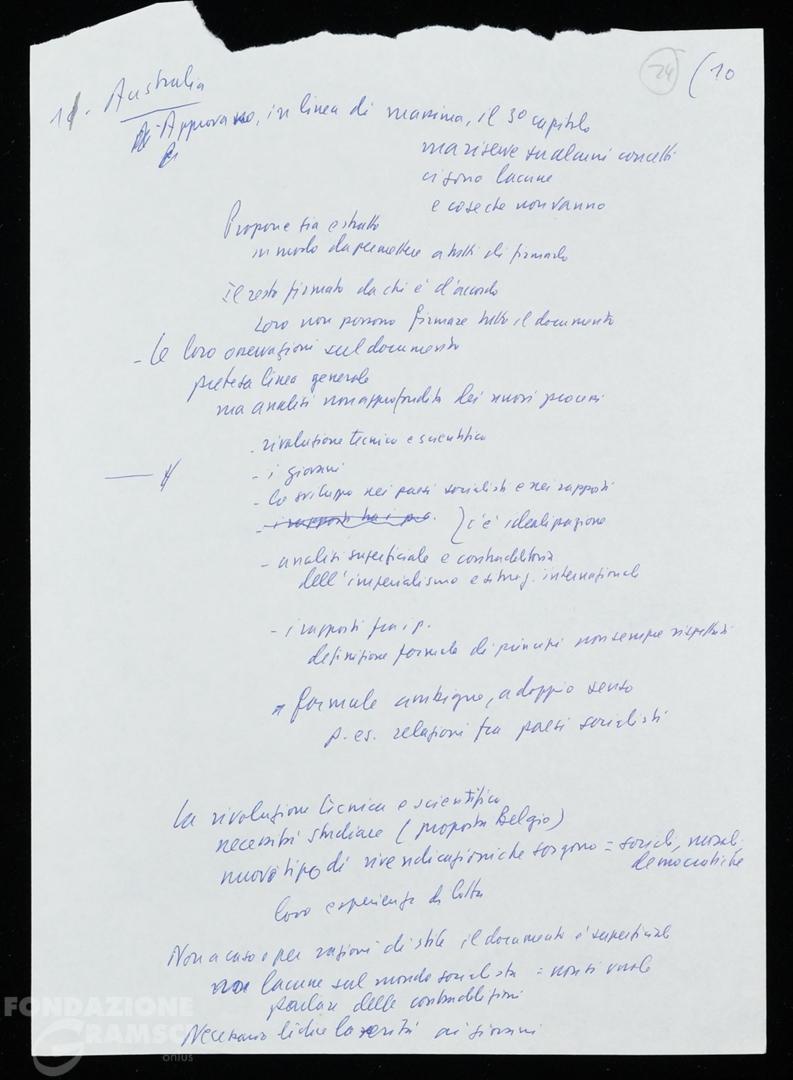 24 (10
11. Australia
- Approvano, in linea di massima, il 3º capitolo
ma riserve su alcuni concetti
ci sono lacune
e cose che non vanno
Propone sia estratto
in modo da permettere a tutti di firmarlo
Il resto firmato da chi è d'accordo
Loro non possono firmare tutto il documento
- Le loro osservazioni sul documento
pretesa linea generale
ma analisi non approfondita dei nuovi processi
- rivoluzione tecnica e scientifica
- i giovani
- lo sviluppo nei paesi socialisti e nei rapporti
- i rapporti tra i p.c. } c'è idealizzazione
- analisi superficiale e contraddittoria
dell'imperialismo e situaz. internazionale
- i rapporti fra i p.
definizione formale di principi non sempre rispettati
- formule ambigue, a doppio senso
p. es. relazioni fra paesi socialisti
La rivoluzione tecnica e scientifica
necessità studiare (proposta Belgio)
nuovo tipo di rivendicazioni che sorgono = sociali, morali,
democratiche
loro esperienze di lotta
Non a caso e per ragioni di stile il documento è superficiale
lacune sul mondo socialista = non si vuole
parlare delle contraddizioni
Necessario dire la verità ai giovani
FONDAZIONE
GRAMSCI
onlus